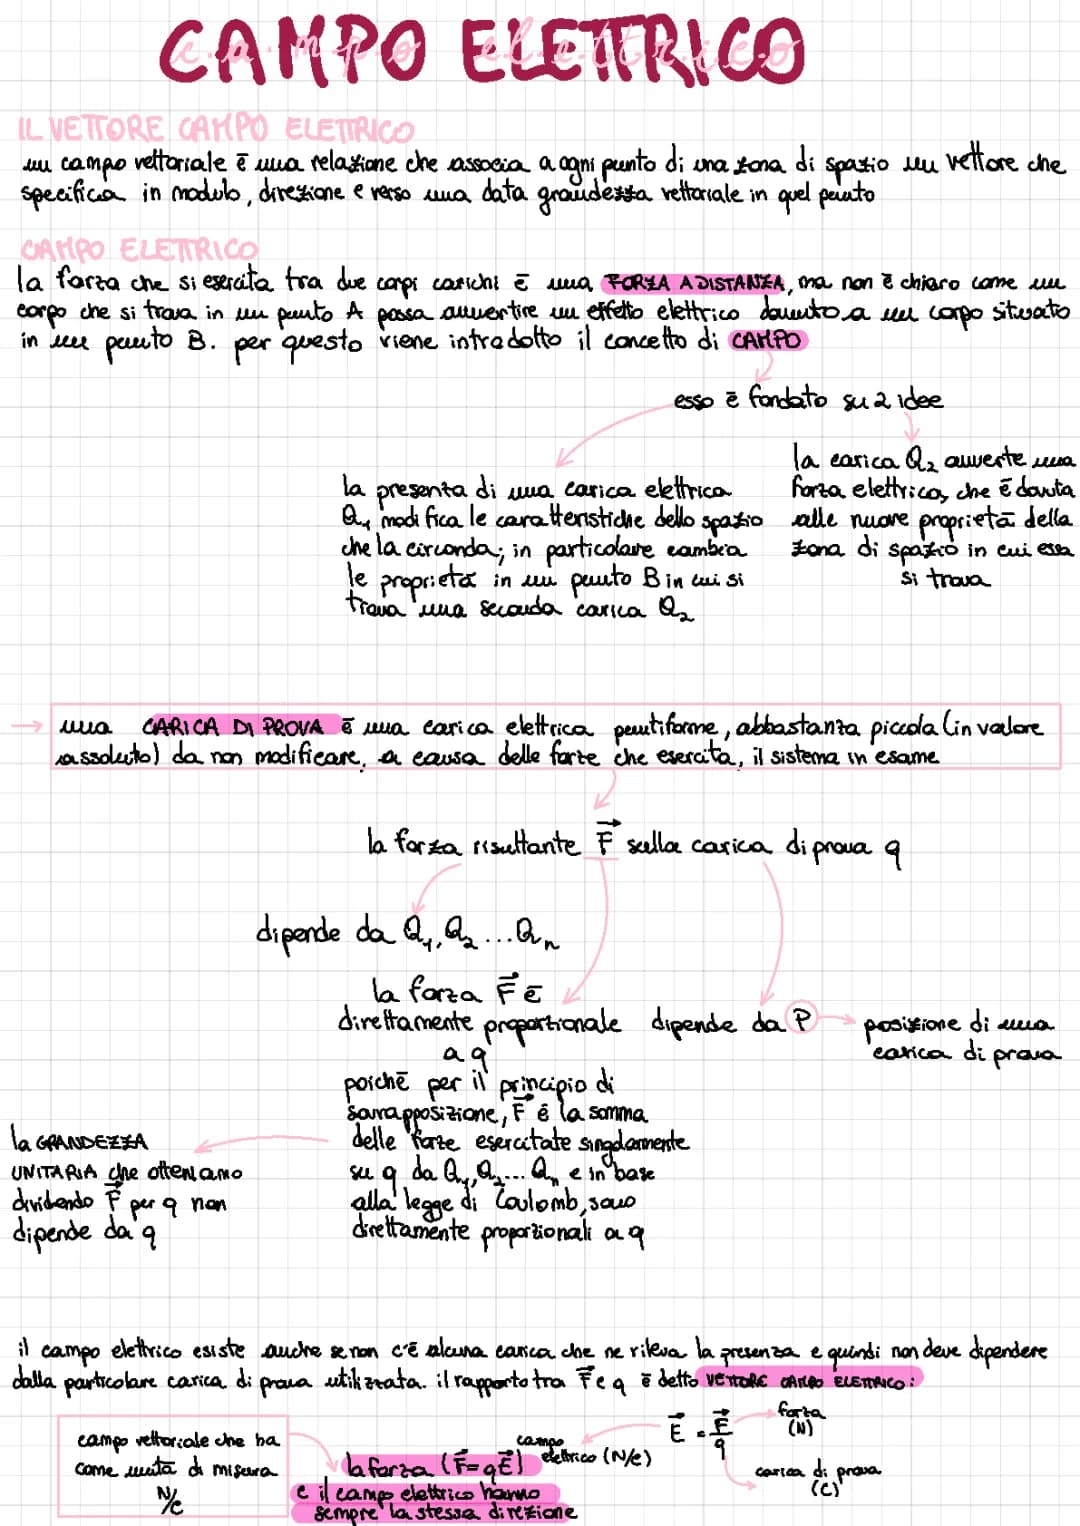 CAMPO ELETTRICO
campo elettrico
IL VETTORE CAMPO ELETTRICO
un campo vettoriale è una relazione che associa a ogni punto di una zona di spazio un vettore che
specifica in modulo, direzione e verso una data grandezza vettoriale in quel punto
CAMPO ELETTRICO
la forza che si esercita tra due corpi carichi è una FORZA A DISTANZA, ma non è chiaro come un
corpo che si trova in un punto A possa avvertire un effetto elettrico dovuto a un corpo situato
in un punto B. per questo viene introdotto il concetto di CAMPO
esso è fondato su 2 idee
la presenza di una carica elettrica
Q₁ modifica le caratteristiche dello spazio
che la circonda; in particolare cambia
le proprietà in un punto B in cui si
trova una seconda carica Q₂
la carica Q₂ avverte una
forza elettrica, che è dovuta
alle nuove proprietà della
zona di spazio in cui essa
si trova
una CARICA DI PROVA è una carica elettrica puntiforme, abbastanza piccola (in valore
assoluto) da non modificare, a causa delle forze che esercita, il sistema in esame
la forza risultante F⃗ sulla carica di prova q
dipende da Q₁, Q₂ ... Qₙ
la forza F⃗ è
direttamente proporzionale
a q
poiché per il principio di
sovrapposizione, F⃗ è la somma
delle forze esercitate singolarmente
su q da Q₁, Q₂... Qₙ e in base
alla legge di Coulomb, sono
direttamente proporzionali a q
dipende da P
posizione di una
carica di prova
la GRANDEZZA
UNITARIA che otteniamo
dividendo F⃗ per q non
dipende da q
il campo elettrico esiste anche se non c'è alcuna carica che ne rileva la presenza e quindi non deve dipendere
dalla particolare carica di prova utilizzata. il rapporto tra F⃗ e q è detto VETTORE CAMPO ELETTRICO:
E⃗ = F⃗/q
forza
(N)
carica di prova
(C)
campo
elettrico (N/C)
campo vettoriale che ha
come unità di misura
N/C
la forza (F⃗=qE⃗)
e il campo elettrico hanno
sempre la stessa direzione